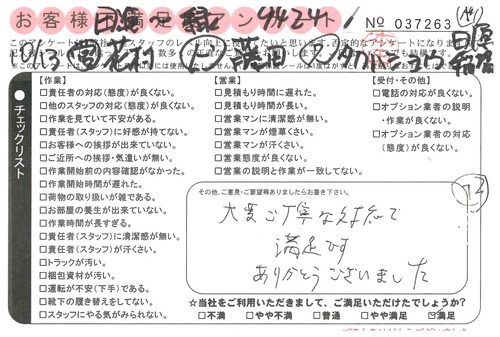 お客様満足 ント
No 037263
チェックリスト
【作業】
□責任者の対応(態度)が良くない。
□他のスタッフの対応(態度)が良くない。
□作業を見ていて不安がある。
□責任者(スタッフ)に好感が持てない。
□お客様への挨拶が出来ていない。
□ご近所への挨拶・気遣いが無い。
□作業開始前の内容確認がなかった。
□作業開始時間が遅れた。
□荷物の取り扱いが雑である。
□お部屋の養生が出来ていない。
□作業時間が長すぎる。
□責任者(スタッフ)に清潔感が無い。
□責任者(スタッフ)が汗くさい。
□トラックが汚い。
□梱包資材が汚い。
□運転が不安(下手)である。
□靴下の履き替えをしてない。
□スタッフにやる気がみられない。
【営業】
□見積もり時間に遅れた。
□見積もり時間が長い。
□営業マンに清潔感が無い。
□営業マンが煙草くさい。
□営業マンが汗くさい。
□営業態度が良くない。
□営業の説明と作業が一致してない。
【受付・その他】
□電話の対応が良くない。
□オプション業者の説明
・作業が良くない。
□オプション業者の対応
(態度)が良くない。
その他、ご意見・ご要望等ありましたらお書き下さい。
大変ご丁寧な対応で
満足です
ありがとうございました
☆当社をご利用いただきまして、ご満足いただけたでしょうか?
□不満 □やや不満 □普通 □やや満足 ☑満足